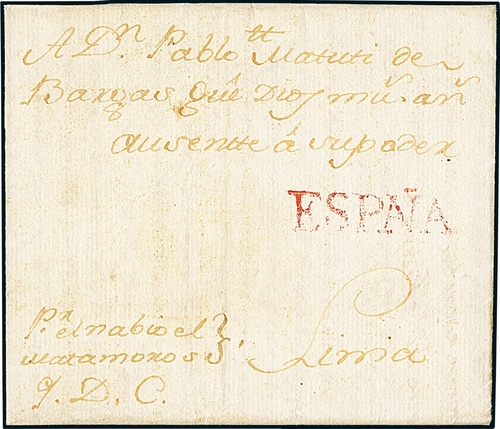 A Dn. Pablo Matuti de
Bargas gûe Dios ms. as.
ausentte á su poder
ESPAÑA
Pr. el nabio el
Matamoros
q. D. C.
Lima